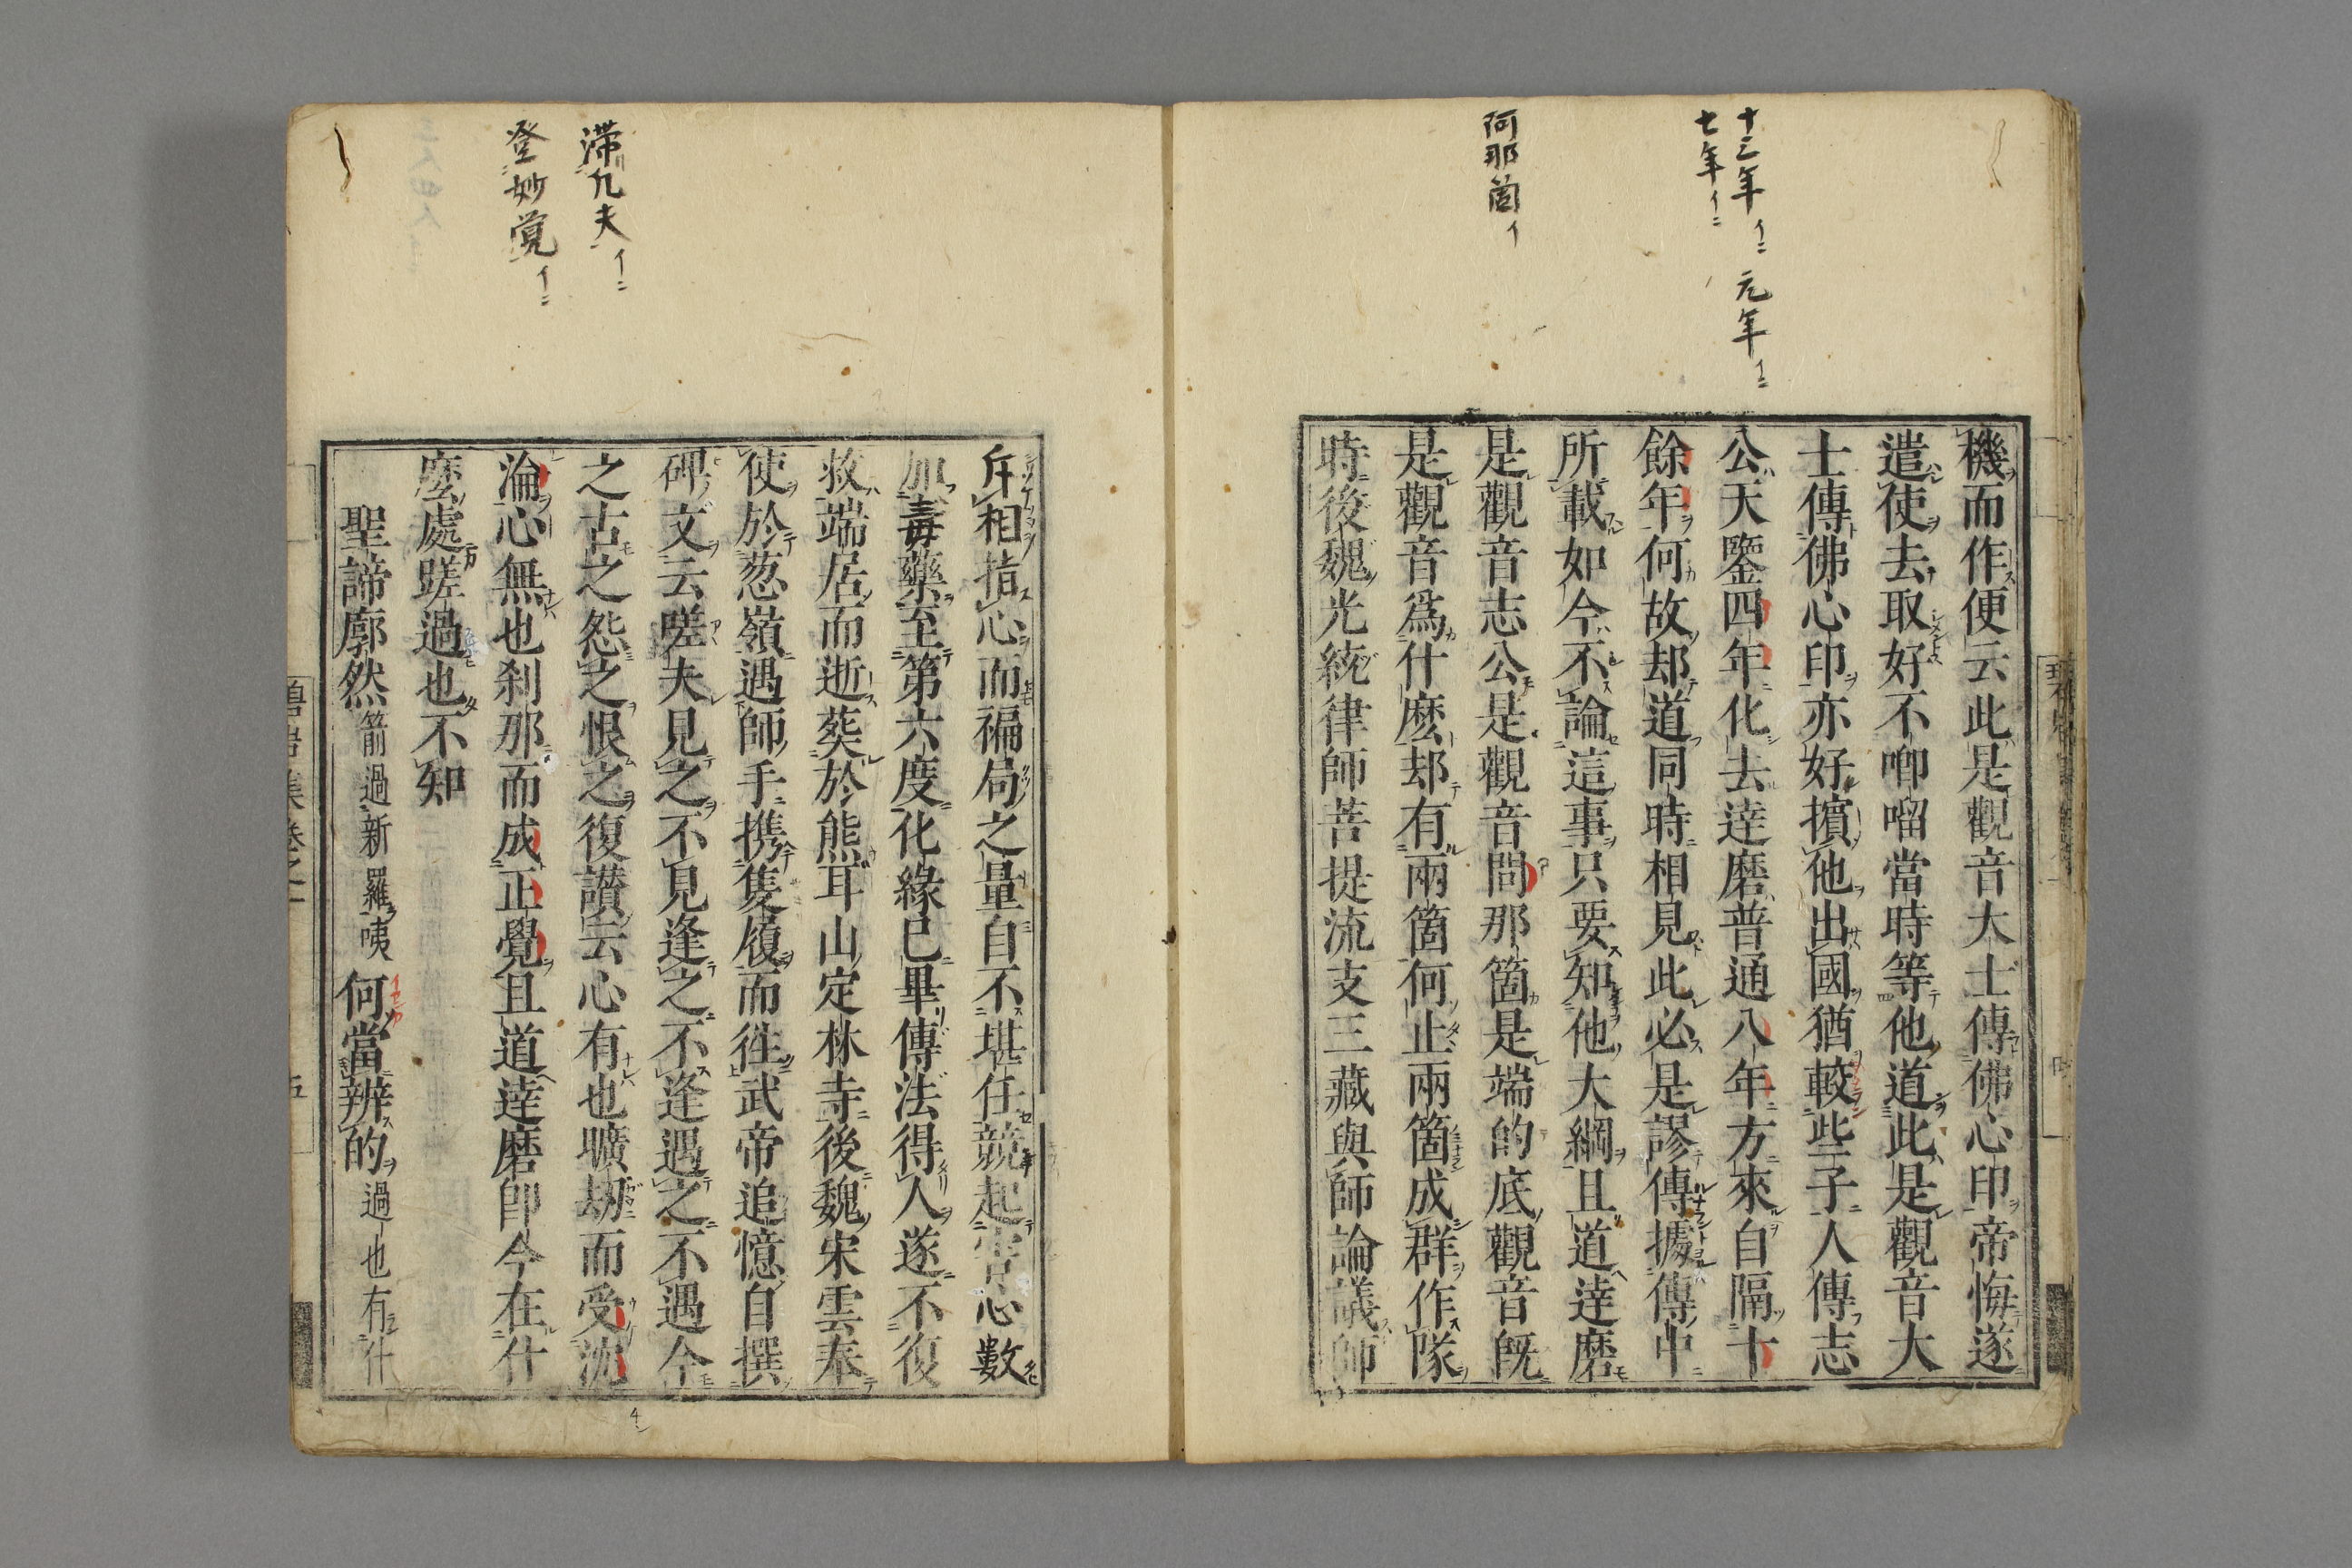 十三年イニ 元年イニ
七年イニ
阿那箇イ
機而作便云此是觀音大士傳佛心印帝悔遂
遣使去取好不唧𠺕當時等他道此是觀音大
士傳佛心印亦好擯他出國猶較些子人傳志
公天鑒四年化去達磨普通八年方來自隔十
餘年何故却道同時相見此必是謬傳據傳中
所載如今不論這事只要知他大綱且道達磨
是觀音志公是觀音問那箇是端的底觀音既
是觀音爲什麽却有兩箇何止兩箇成群作隊
時後魏光統律師菩提流支三藏與師論議師
滞凡夫イニ
登妙覚イニ
斥相指心而褊局之量自不堪任競起害心數
加毒藥至第六度化緣已畢傳法得人遂不復
救端居而逝葬於熊耳山定林寺後魏宋雲奉
使於葱嶺遇師手携隻履而往武帝追憶自撰
碑文云嗟夫見之不見逢之不逢遇之不遇今
之古之怨之恨之復讃云心有也曠劫而受沈
淪心無也刹那而成正覺且道達磨即今在什
麽處蹉過也不知
聖諦廓然箭過新羅咦何當辨的過也有什